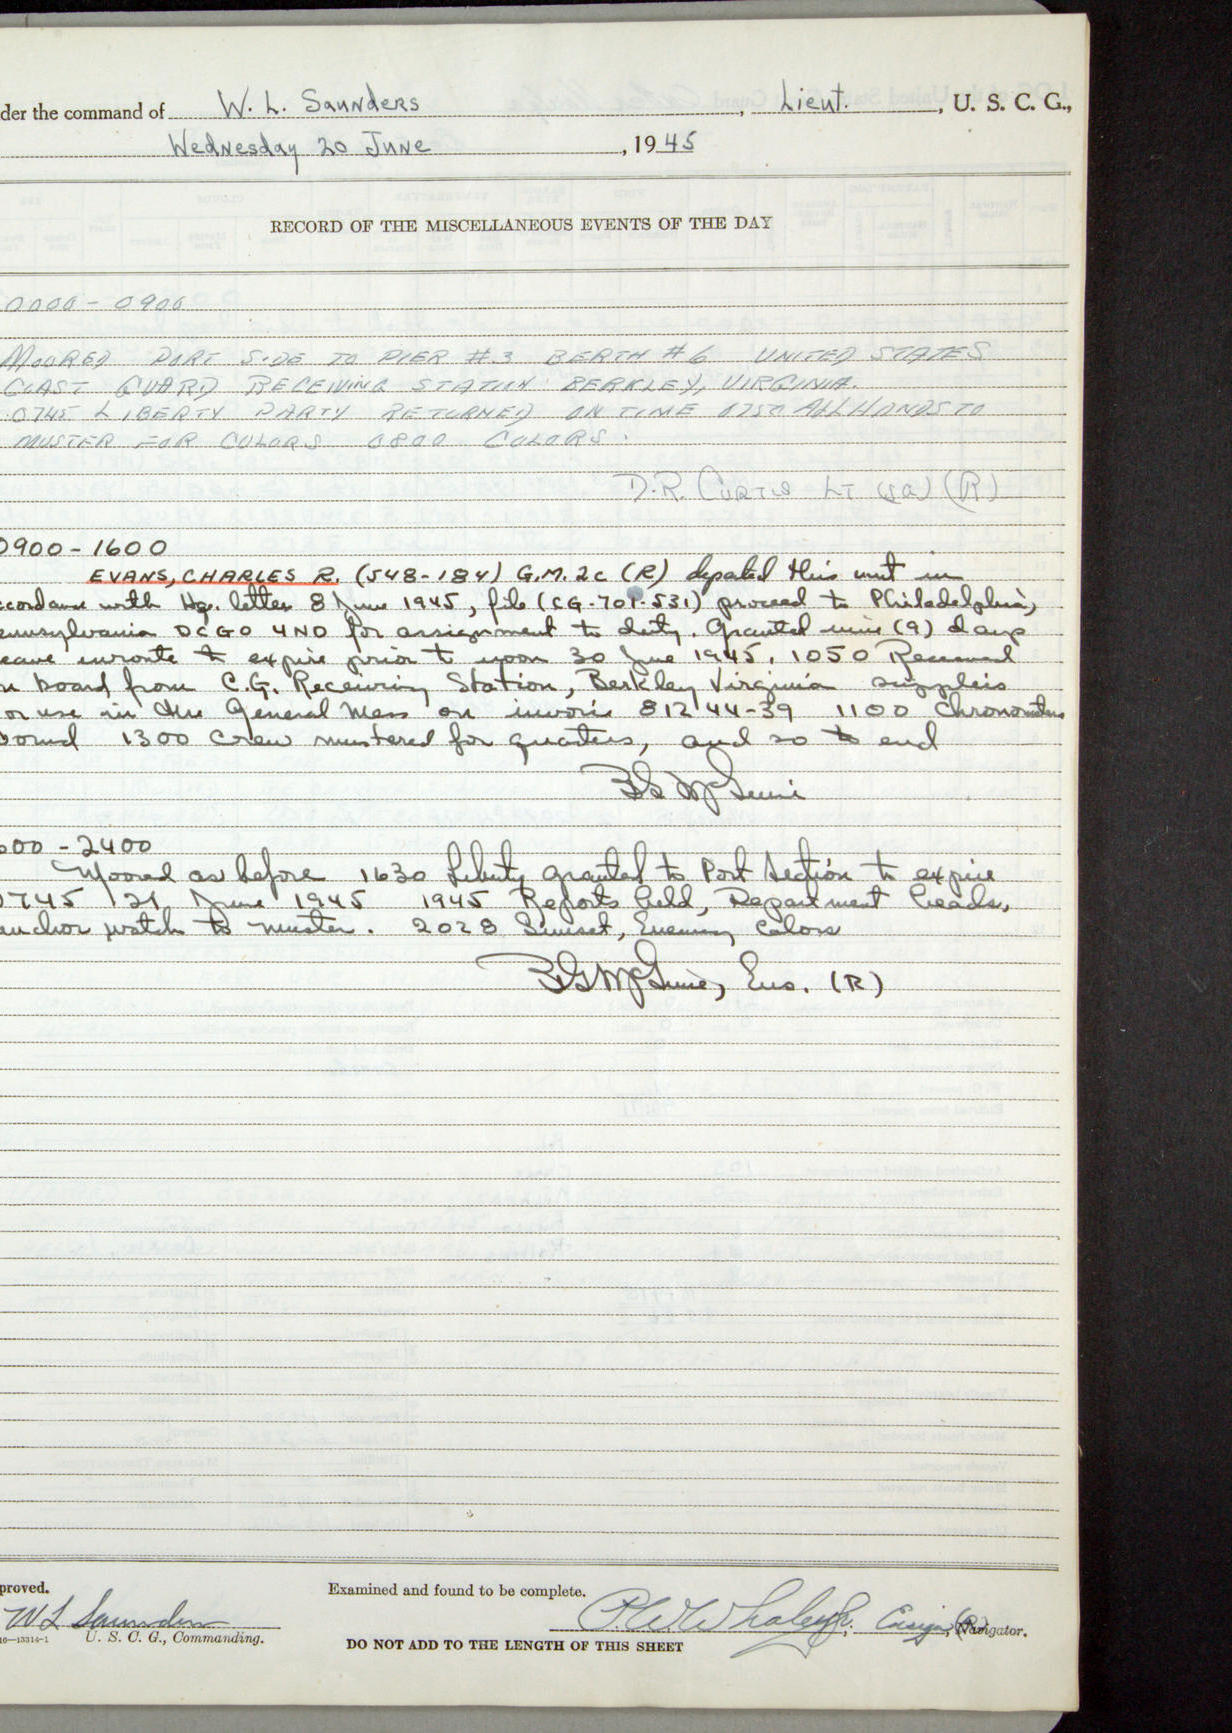 der the command of W. L. Saunders, Lieut., U. S. C. G.,
Wednesday 20 June, 1945
RECORD OF THE MISCELLANEOUS EVENTS OF THE DAY
0000 - 0900
MOORED PORT SIDE TO PIER #3 BERTH #6 UNITED STATES
COAST GUARD RECEIVING STATION BERKLEY, VIRGINIA.
0745 LIBERTY PARTY RETURNED ON TIME 0750 ALL HANDS TO
MUSTER FOR COLORS 0800 COLORS.
D.R. CURTIS LT (JG) (R)
0900 - 1600
EVANS, CHARLES R. (548-184) G.M. 2c (R) depated this unit in
ccordance with Hq. letter 8 June 1945, file (CG-701-531) proceed to Philadelphia,
ennsylvania DCGO 4ND for assignment to duty. Granted nine (9) days
eave enroute to expire prior to noon 30 June 1945. 1050 Received
n board from C.G. Receiving Station, Berkley Virginia supplies
or use in the General Mess on invoice 81244-39 1100 Chronometers
ound 1300 Crew mustered for quarters, and so to end
BG McGuire
600 - 2400
Moored as before 1630 Liberty granted to Port Section to expire
0745 21 June 1945 1945 Reports held, Department heads,
anchor watch to muster. 2028 Sunset, Evening Colors
BG McGuire, Ens. (R)
proved.
Examined and found to be complete.
W L Saunders
P.W. Whaley Jr., Ensign (R), Navigator.
16—13314-1 U. S. C. G., Commanding.
DO NOT ADD TO THE LENGTH OF THIS SHEET